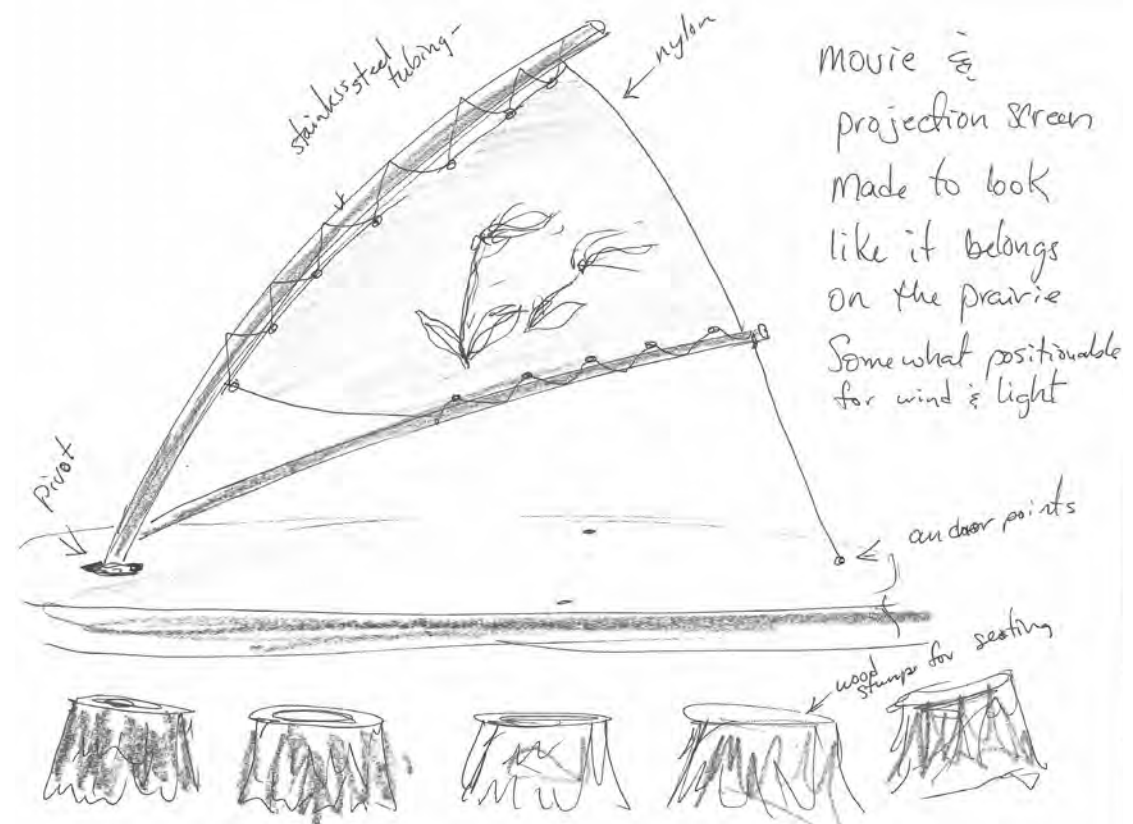 stainless steel
tubing-
nylon
movie &
projection screen
Made to look
like it belongs
on the prairie
Somewhat positionable
for wind & light
pivot
anchor points
wood
stumps for seating